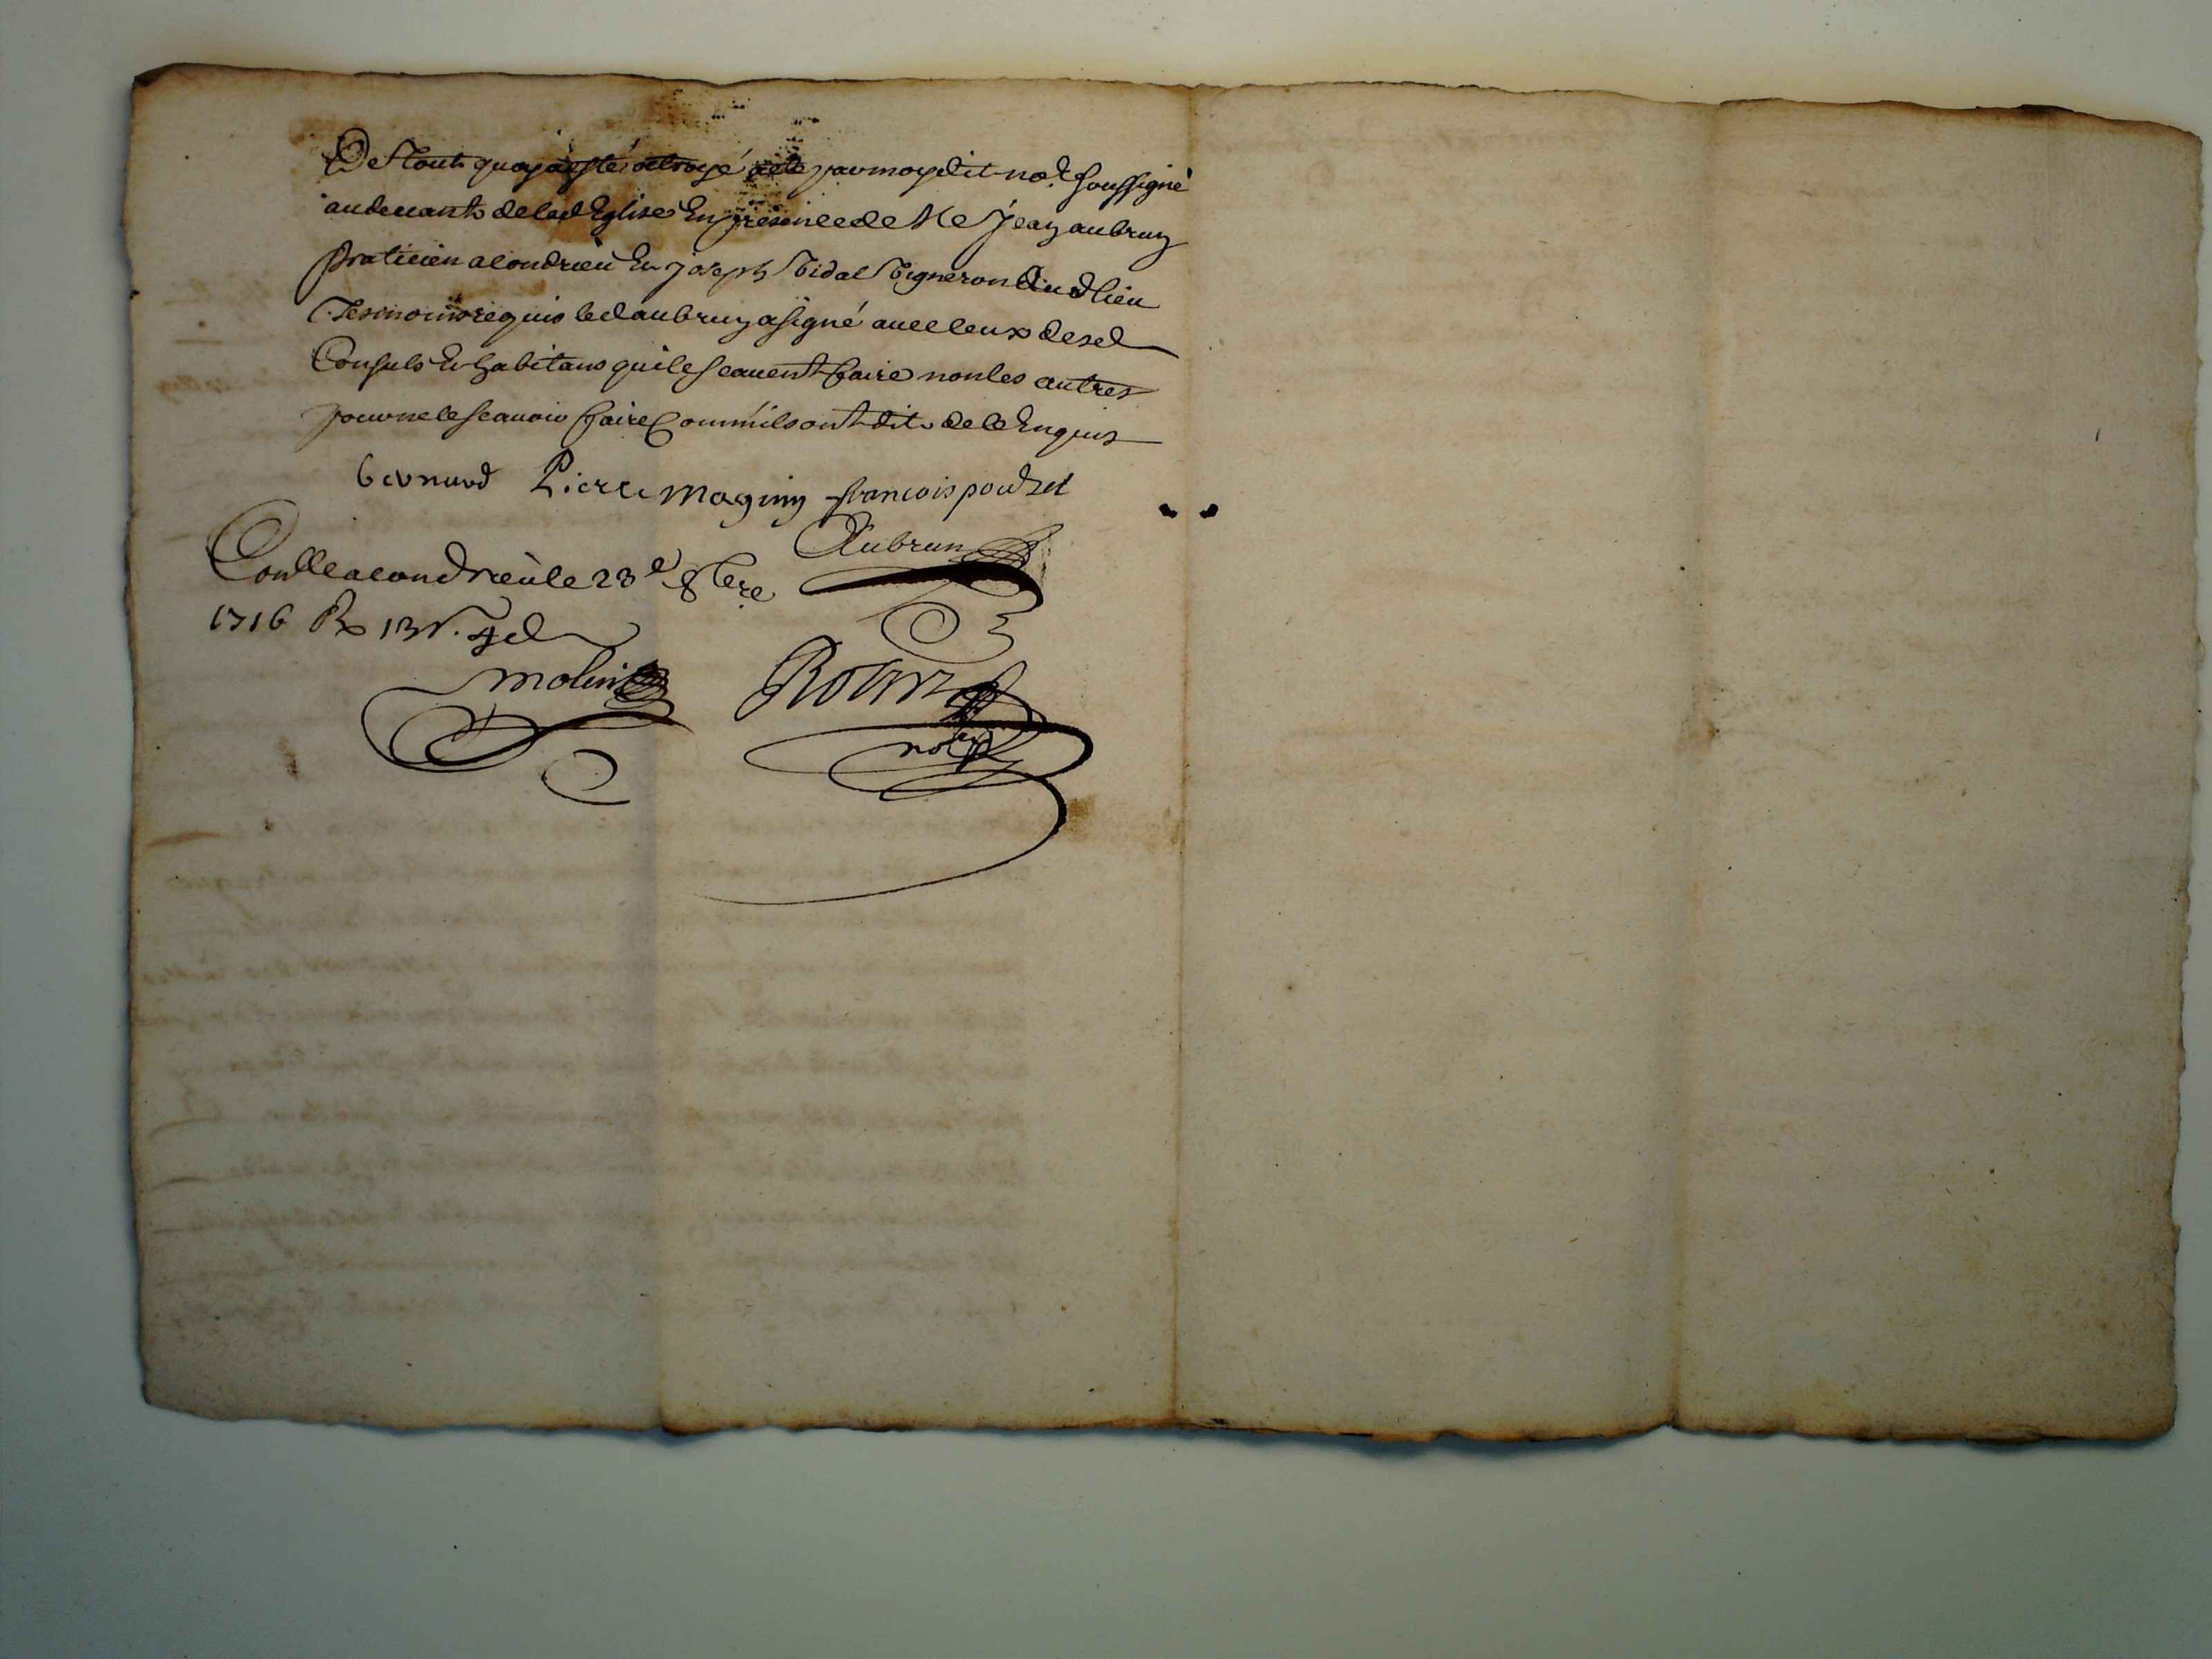 De Tout quoy a esté octroyé acte par moydit no.re soussigné
au deuant de lad Eglise En presence de Me Jean aubrun
praticien a Condrieu Et Joseph Vidal Vigneron dud lieu
Tesmoins requis led aubrun a signé auec ceux desd
Consuls Et habitans qui le scauent faire non les autres
pour ne le scauoir faire Comm'ils ont dit de ce Enquis
bernard Pierre Magnin francois pouzet
Aubrun
Con.lle a Condrieu le 23e 8bre
1716 Rx 13s. 4d
Molin
no.re